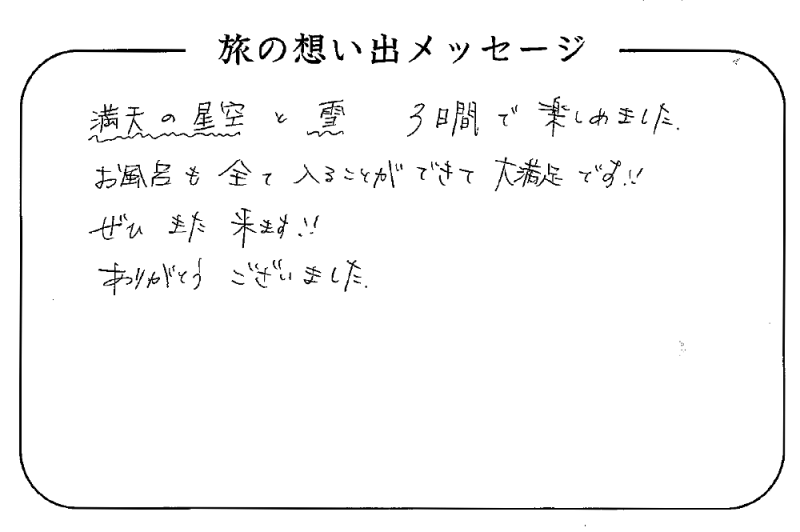 旅の想い出メッセージ
満天の星空と雪 3日間で楽しめました.
お風呂も全て入ることができて大満足です!!
ぜひまた来ます!!
ありがとうございました.